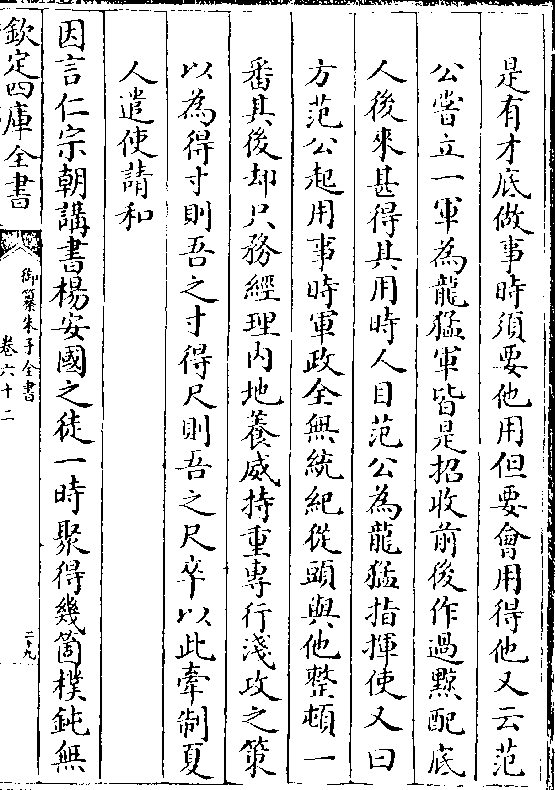 是有才底做事時須要他用但要會用得他又云范
公嘗立一軍為龍猛軍皆是招收前後作過黥配底
人後來甚得其用時人目范公為龍猛指揮使又曰
方范公起用事時軍政全無統紀從頭與他整頓一
番其後却只務經理内地養威持重專行淺攻之策
以為得寸則吾之寸得尺則吾之尺卒以此牽制夏
人遣使請和
因言仁宗朝講書楊安國之徒一時聚得幾箇樸鈍無
欽定四庫全書
御纂朱子全書
卷六十二
二十九